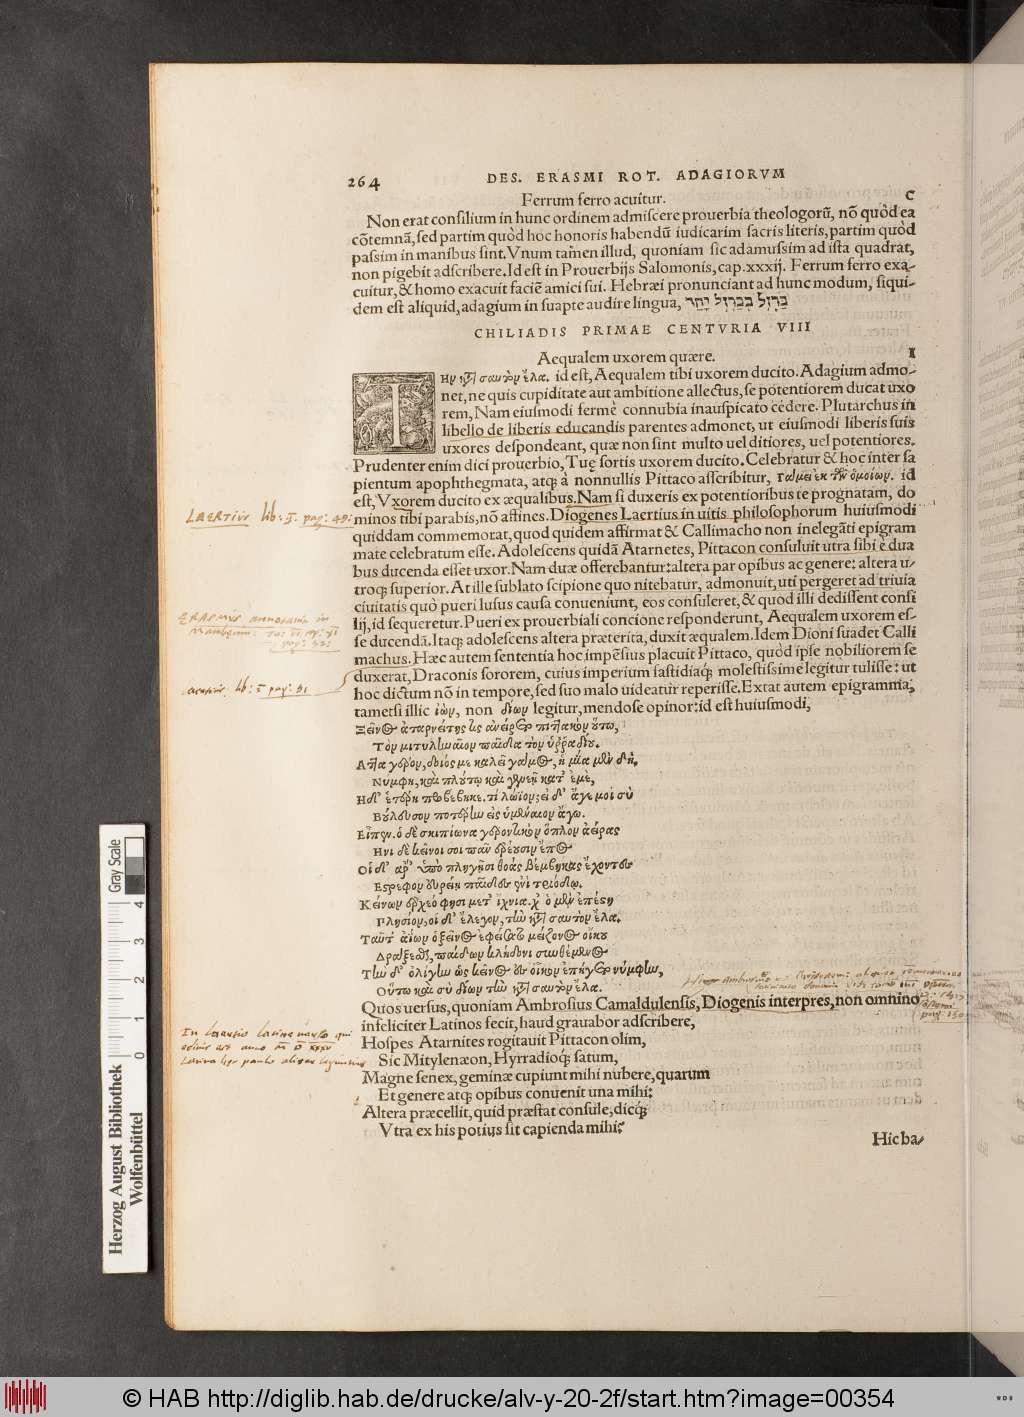 264 DES. ERASMI ROT. ADAGIORVM
Ferrum ferro acuitur. C
Non erat consilium in hunc ordinem admiscere prouerbia theologorũ, nõ quòd ea
cõtemnã, sed partim quòd hoc honoris habendũ iudicarim sacris literis, partim quòd
passim in manibus sint. Vnum tam̃en illud, quoniam sic adamussim ad ista quadrat,
non pigebit adscribere. Id est in Prouerbijs Salomonis, cap. xxxij. Ferrum ferro exa-
cuitur, & homo exacuit faciẽ amici sui. Hebræi pronunciant ad hunc modum, siqui-
dem est aliquid, adagium in suapte audire lingua, בַּרְזֶל בְּבַרְזֶל יָחַד
CHILIADIS PRIMAE CENTVRIA VIII
Aequalem uxorem quære. I
Τὴν κατὰ σαυτὸν ἔλα. id est, Aequalem tibi uxorem ducito. Adagium admo-
net, ne quis cupiditate aut ambitione allectus, se potentiorem ducat uxo
rem, Nam eiusmodi fermè connubia inauspicato cedere. Plutarchus in
libello de liberis educandis parentes admonet, ut eiusmodi liberis suis
uxores despondeant, quæ non sint multo uel ditiores, uel potentiores.
Prudenter enim dici prouerbio, Tuę sortis uxorem ducito. Celebratur & hoc inter sa
pientum apophthegmata, atq; à nonnullis Pittaco asscribitur, γαμεῖ ἐκ τῶν ὁμοίων. id
est, Vxorem ducito ex æqualibus. Nam si duxeris ex potentioribus te prognatam, do
minos tibi parabis, nõ affines. Diogenes Laertius in uitis philosophorum huiusmodi
quiddam commemorat, quod quidem affirmat & Callimacho non inelegãti epigram
mate celebratum esse. Adolescens quidã Atarnetes, Pittacon consuluit utra sibi è dua
bus ducenda esset uxor. Nam duæ offerebantur: altera par opibus ac genere: altera u-
troq; superior. At ille sublato scipione quo nitebatur, admonuit, uti pergeret ad triuia
ciuitatis quò pueri lusus causa conueniunt, eos consuleret, & quod illi dedissent consi
lij, id sequeretur. Pueri ex prouerbiali concione responderunt, Aequalem uxorem es-
se ducendã. Itaq; adolescens altera præterita, duxit æqualem. Idem Dioni suadet Calli
machus. Hæc autem sententia hoc impẽsius placuit Pittaco, quòd ipse nobiliorem se
duxerat, Draconis sororem, cuius imperium fastidiaq; molestissime legitur tulisse: ut
hoc dictum nõ in tempore, sed suo malo uideatur reperisse. Extat autem epigramma,
tametsi illic ἰών, non δίων legitur, mendose opinor: id est huiusmodi,
Ξεῖνος ἀταρνείτης τις ἀνείρετο πιττακὸν οὕτω,
Τὸν μιτυληναῖον παῖδα τὸν ὑρραδίου.
Αττα γέρον, δοιός με καλεῖ γάμος, ἡ μία μὲν δὴ
Νύμφη, καὶ πλούτῳ καὶ γενεῇ κατ' ἐμέ,
Η δ' ἑτέρη προβέβηκε. τί λώϊον; εἰ δ' ἄγε μοι σὺ
Βούλευσον ποτέρην εἰς ὑμέναιον ἄγω.
Εἶπεν. ὁ δὲ σκιπίωνα γεροντικὸν ὅπλον ἀείρας
Ηνὶ δὲ κεῖνοι σοι πᾶν ἐρέουσιν ἔπος
Οἱ δ' ἄρ' ὑπὸ πληγῇσι θοὰς βέμβηκας ἔχοντες
Εστρεφον εὐρείῃ παῖδες ἐνὶ τριόδῳ.
Κείνων ἔρχεο φησι μετ' ἴχνια. χ' ὁ μὲν ἐπέστη
Πλησίον, οἱ δ' ἔλεγον, τὴν κατὰ σαυτὸν ἔλα.
Ταῦτ' ἀΐων ὁ ξεῖνος ἐφείσατο μείζονος οἴκου
Δράξεσθαι, παίδων κληδόνι συνθέμενος
Τὴν δ' ὀλίγην ὡς κεῖνος ἐς οἶκον ἐπήγετο νύμφην,
Οὕτω καὶ σὺ δίων τὴν κατὰ σαυτὸν ἔλα.
Quos uersus, quoniam Ambrosius Camaldulensis, Diogenis interpres, non omnino
infeliciter Latinos fecit, haud grauabor adscribere,
Hospes Atarnites rogitauit Pittacon olim,
Sic Mitylenæon, Hyrradioq; satum,
Magne senex, geminæ cupiunt mihi nubere, quarum
Et genere atq; opibus conuenit una mihi:
Altera præcellit, quid præstat consule, dicq;
Vtra ex his potius sit capienda mihi?
Hic ba-
LAERTIUS lib: I. pag: 49:
ERASMUS annotatio in
Laertius lib: I pag: 51
In Laertio latine uerso qui
editus est anno M D XXXV
Latina haec paulo aliter leguntur
Herzog August Bibliothek
Wolfenbüttel
Gray Scale
0 1 2 3 4
© HAB http://diglib.hab.de/drucke/alv-y-20-2f/start.htm?image=00354